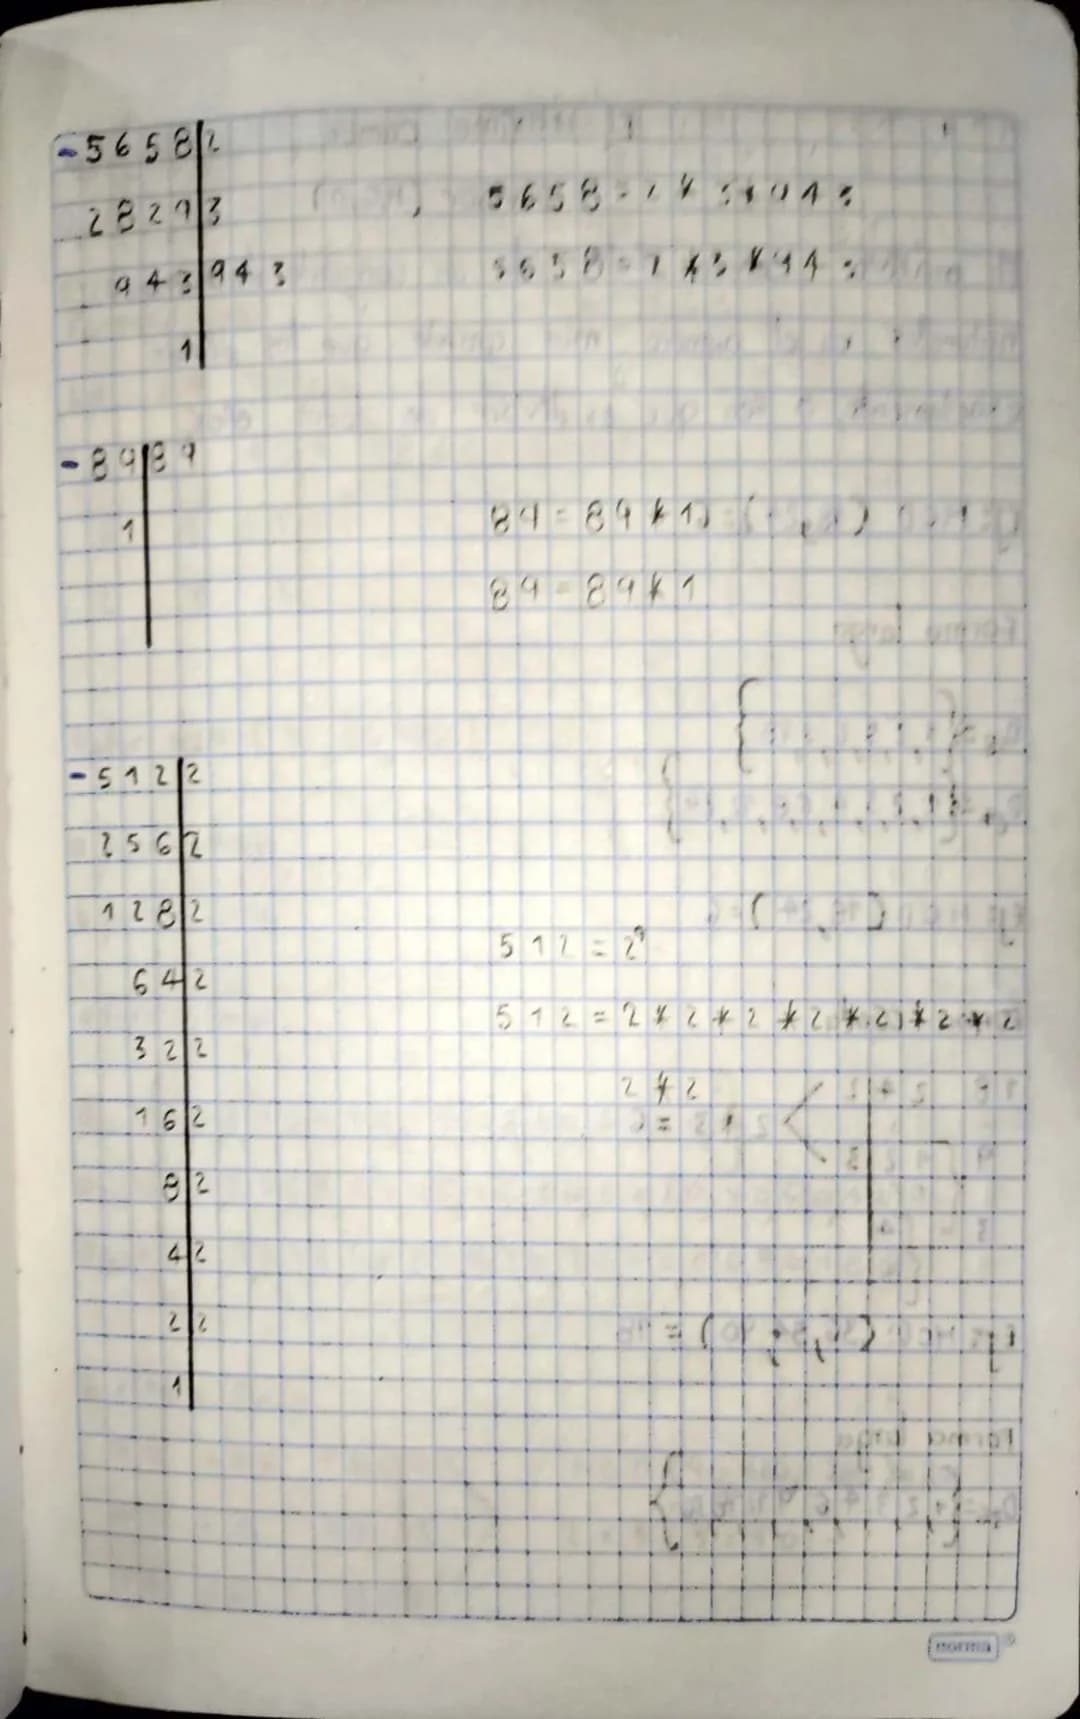 - 5658|2
2829|3
943|943
1
5658 = 2 * 3 * 943
5658 = 2 * 3 * 943
- 89|89
1
89 = 89 * 1
89 = 89 * 1
- 512|2
256|2
128|2
64|2
32|2
16|2
8|2
4|2
2|2
1
512 = 2⁹
512 = 2 * 2 * 2 * 2 * 2 * 2 * 2
2 * 2
norma